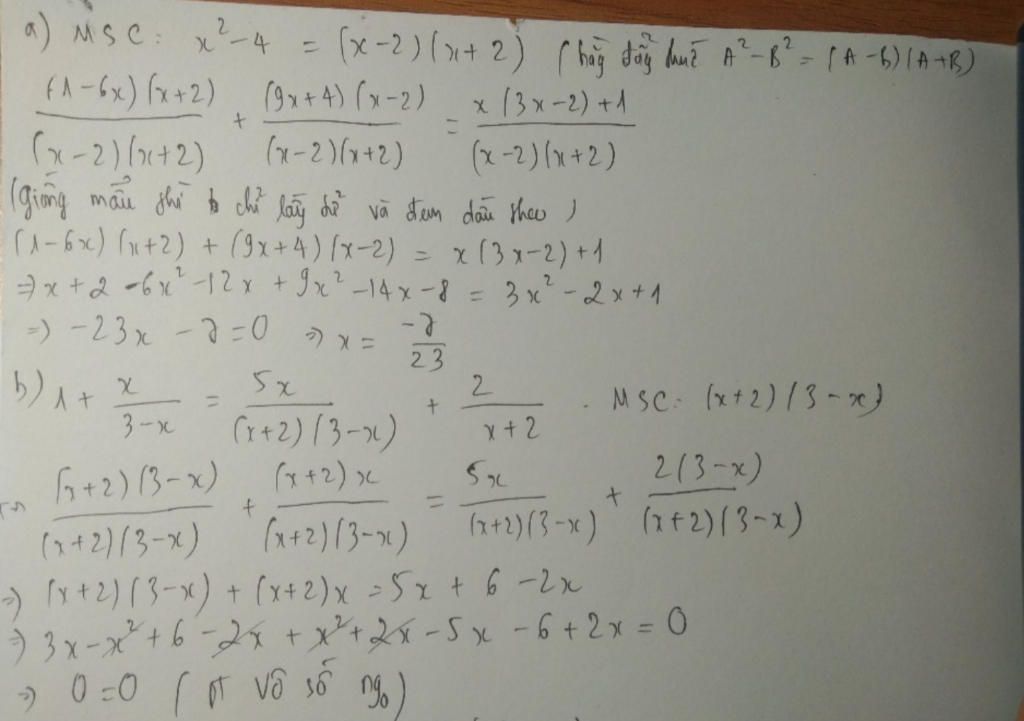 a) MSC: x² - 4 = (x-2)(x+2) (hằg đẳg thức A² - B² = (A-B)(A+B)
\frac{(1-6x)(x+2)}{(x-2)(x+2)} + \frac{(9x+4)(x-2)}{(x-2)(x+2)} = \frac{x(3x-2)+1}{(x-2)(x+2)}
(giống mẫu thì chỉ lấy tử và đem dấu theo)
(1-6x)(x+2) + (9x+4)(x-2) = x(3x-2)+1
⇒ x + 2 - 6x² - 12x + 9x² - 14x - 8 = 3x² - 2x + 1
⇒ -23x - 7 = 0 ⇒ x = \frac{-7}{23}
b) 1 + \frac{x}{3-x} = \frac{5x}{(x+2)(3-x)} + \frac{2}{x+2} . MSC: (x+2)(3-x)
\frac{(x+2)(3-x)}{(x+2)(3-x)} + \frac{(x+2)x}{(x+2)(3-x)} = \frac{5x}{(x+2)(3-x)} + \frac{2(3-x)}{(x+2)(3-x)}
⇒ (x+2)(3-x) + (x+2)x = 5x + 6 - 2x
⇒ 3x - x² + 6 - 2x + x² + 2x - 5x - 6 + 2x = 0
⇒ 0 = 0 (pt vô số ngo)